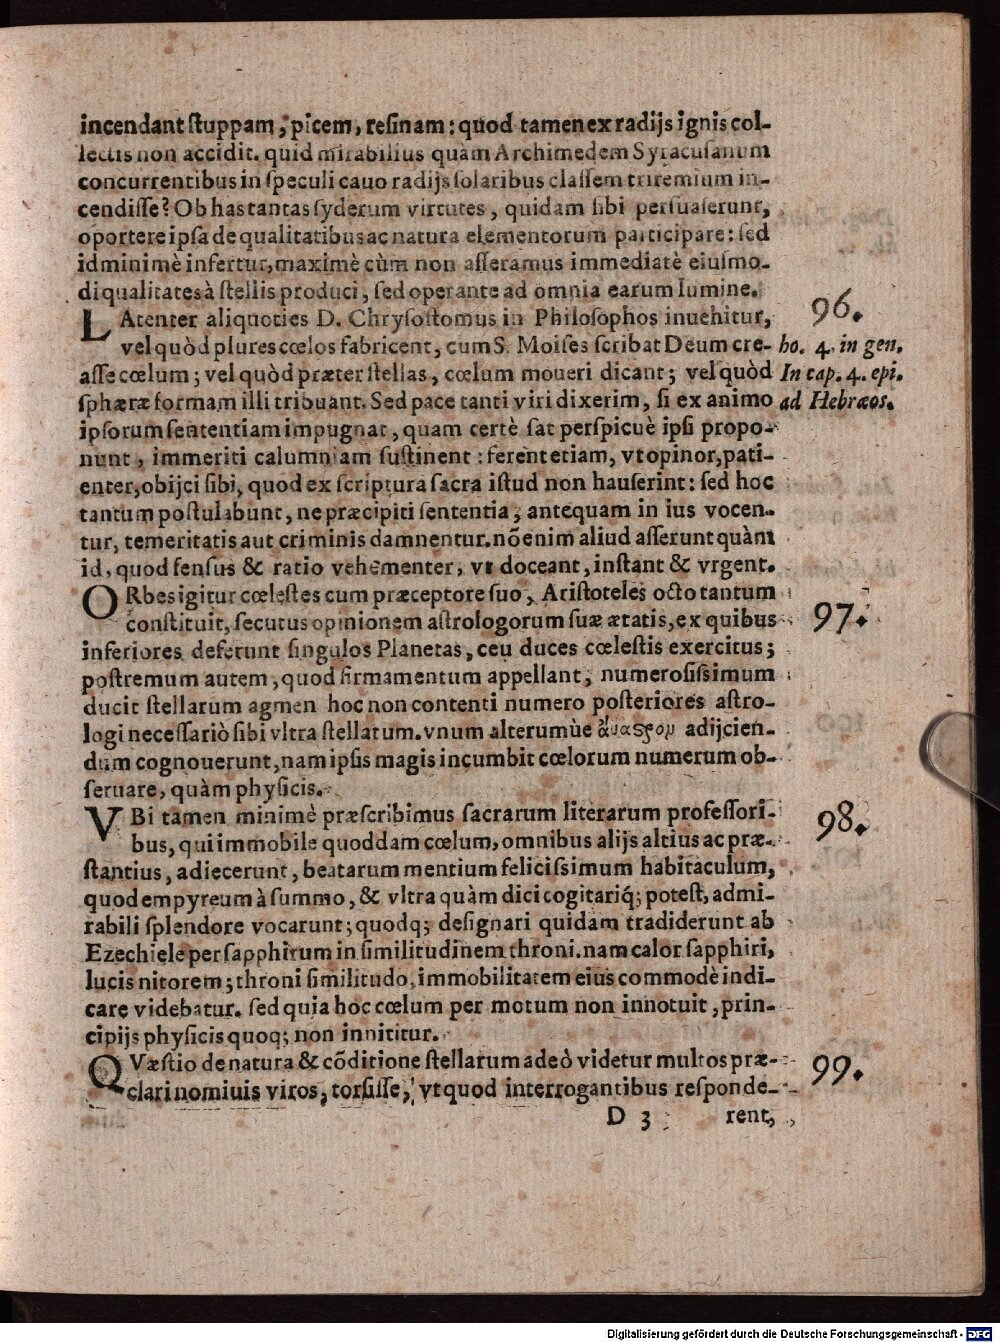 incendant ſtuppam, picem, reſinam: quod tamen ex radijs ignis col-
lectis non accidit. quid mirabilius quàm Archimedem Syracuſanum
concurrentibus in ſpeculi cauo radijs ſolaribus claſſem triremium in-
cendiſſe? Ob has tantas ſyderum virtutes, quidam ſibi perſuaſerunt,
oportere ipſa de qualitatibus ac natura elementorum participare: ſed
id minimè infertur, maximè cùm non aſſeramus immediatè eiuſmo-
di qualitates à ſtellis produci, ſed operante ad omnia earum lumine.
LAtenter aliquoties D. Chryſoſtomus in Philoſophos inuehitur, 96.
vel quòd plures cœlos fabricent, cum S. Moiſes ſcribat Deum cre- ho. 4. in gen.
aſſe cœlum; vel quòd præter ſtellas, cœlum moueri dicant; vel quòd In cap. 4. epi.
ſphæræ formam illi tribuant. Sed pace tanti viri dixerim, ſi ex animo ad Hebræos.
ipſorum ſententiam impugnat, quam certè ſat perſpicuè ipſi propo-
nunt, immeriti calumniam ſuſtinent: ferent etiam, vt opinor, pati-
enter, obijci ſibi, quod ex ſcriptura ſacra iſtud non hauſerint: ſed hoc
tantum poſtulabunt, ne præcipiti ſententia, antequam in ius vocen-
tur, temeritatis aut criminis damnentur. nō enim aliud aſſerunt quàm
id, quod ſenſus & ratio vehementer, vt doceant, inſtant & vrgent.
ORbes igitur cœleſtes cum præceptore ſuo, Ariſtoteles octo tantum
conſtituit, ſecutus opinionem aſtrologorum ſuæ ætatis, ex quibus 97.
inferiores deferunt ſingulos Planetas, ceu duces cœleſtis exercitus;
poſtremum autem, quod firmamentum appellant, numeroſiſſimum
ducit ſtellarum agmen hoc non contenti numero poſteriores aſtro-
logi neceſſariò ſibi vltra ſtellatum. vnum alterumùe ἄναςρον adijcien-
dum cognouerunt, nam ipſis magis incumbit cœlorum numerum ob-
ſeruare, quàm phyſicis.
VBi tamen minimè præſcribimus ſacrarum literarum profeſſori- 98.
bus, qui immobile quoddam cœlum, omnibus alijs altius ac præ-
ſtantius, adiecerunt, beatarum mentium feliciſſimum habitaculum,
quod empyreum à ſummo, & vltra quàm dici cogitariq; poteſt, admi-
rabili ſplendore vocarunt; quodq; deſignari quidam tradiderunt ab
Ezechiele per ſapphirum in ſimilitudinem throni. nam calor ſapphiri,
lucis nitorem; throni ſimilitudo, immobilitatem eius commodè indi-
care videbatur. ſed quia hoc cœlum per motum non innotuit, prin-
cipijs phyſicis quoq; non innititur.
QVæſtio de natura & cōditione ſtellarum adeò videtur multos præ- 99.
clari nominis viros, torſiſſe, vt quod interrogantibus reſponde-
D 3 rent,
Digitalisierung gefördert durch die Deutsche Forschungsgemeinschaft - DFG